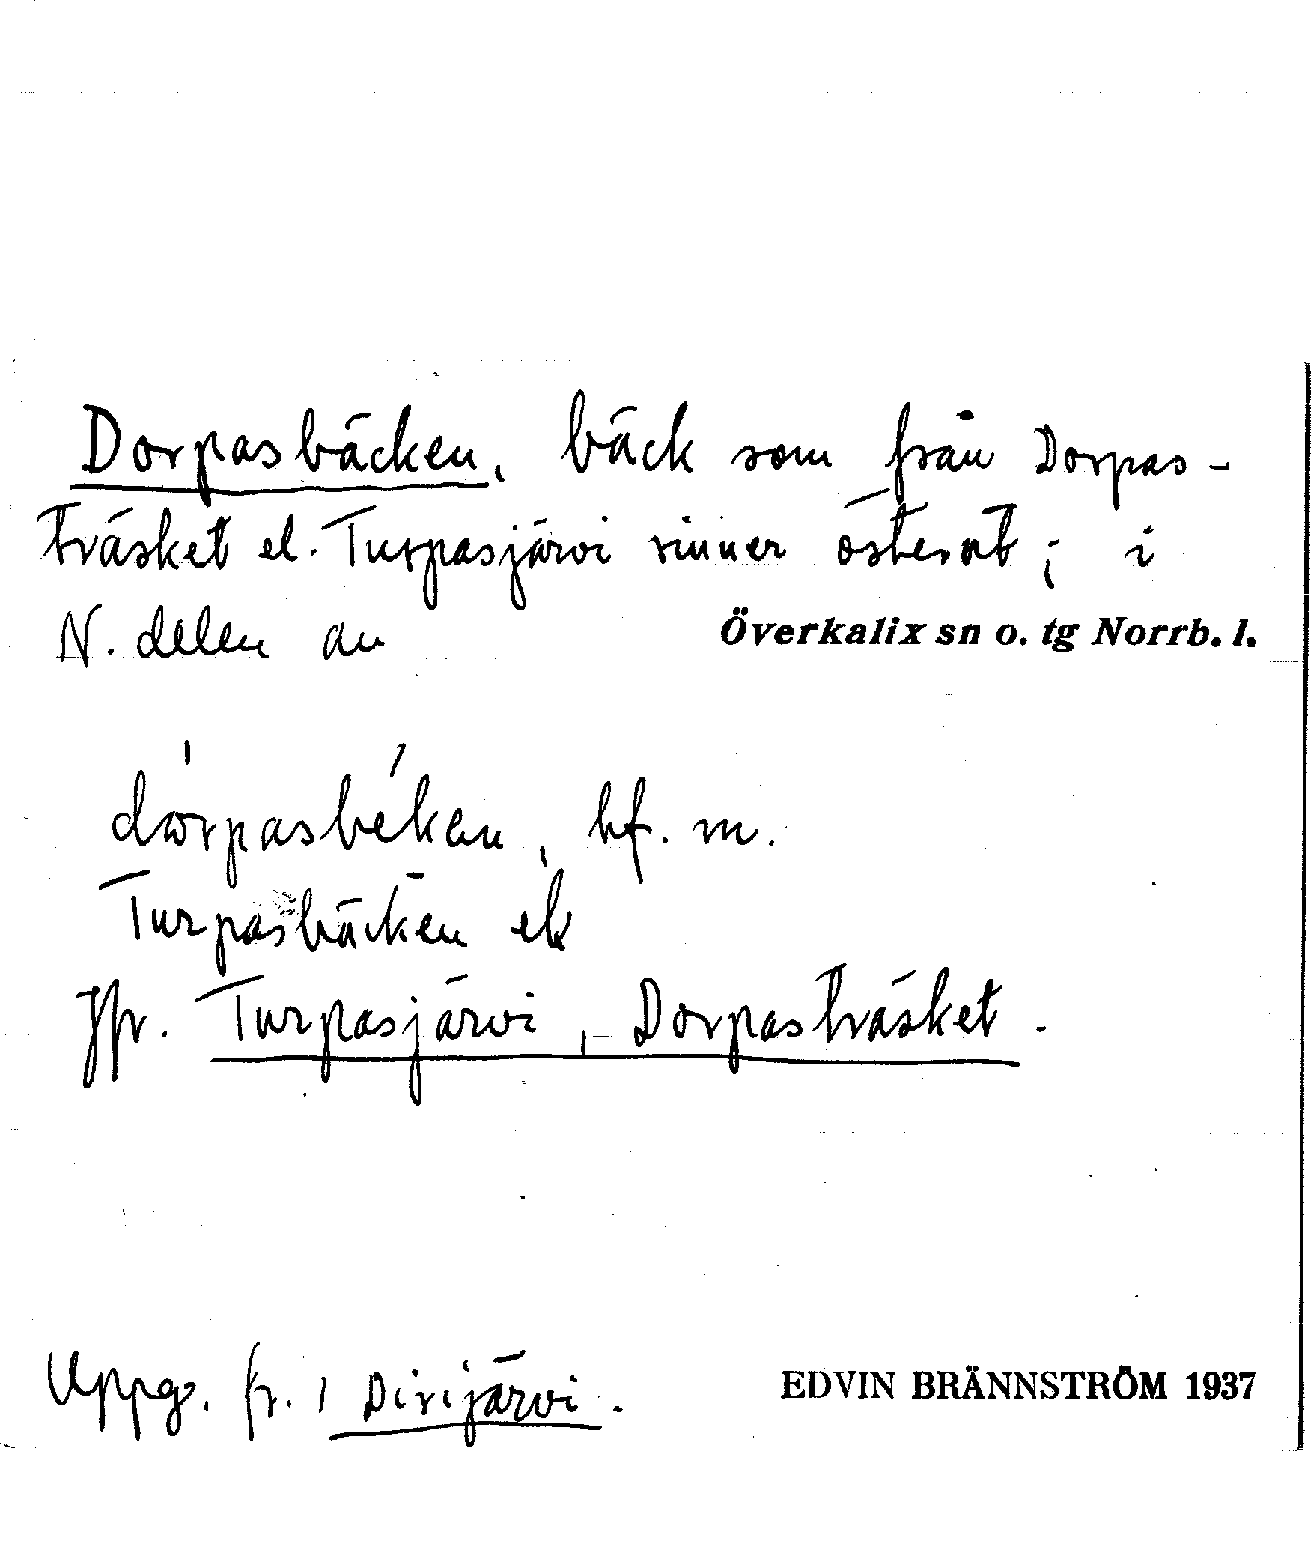 Dorpasbäcken, bäck som från Dorpas-
träsket el. Turpasjärvi rinner österut; i
N. delen av Överkalix sn o. tg Norrb. l.
dorpasbekan, bf. m.
Turpasbäcken el
Jfr. Turpasjärvi, Dorpasträsket.
Uppg. fr. Dirijärvi. EDVIN BRÄNNSTRÖM 1937